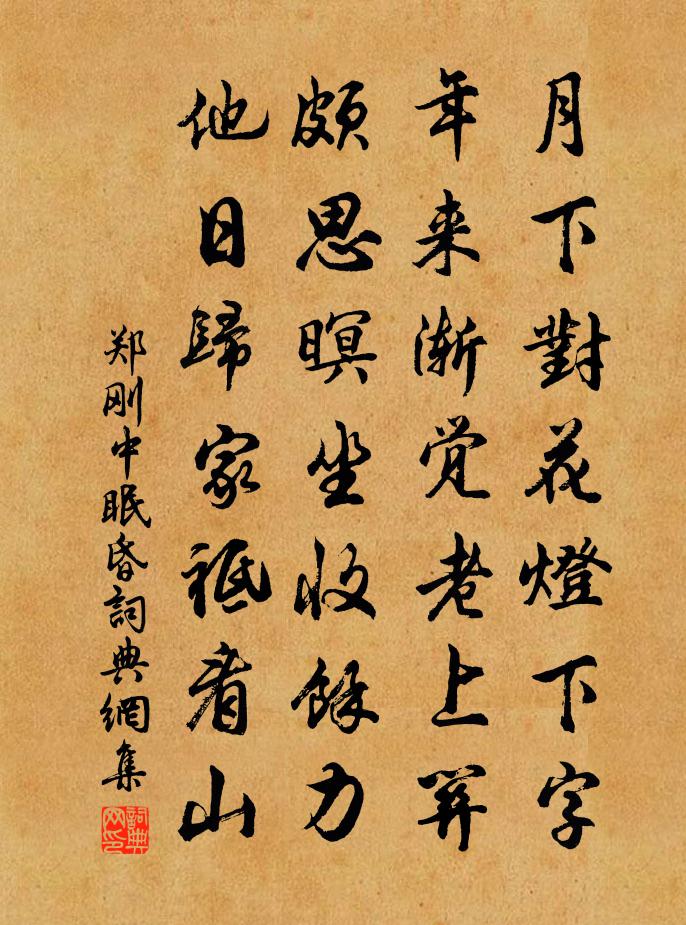 月下對花燈下字
年来渐觉老上關
頗思瞑坐收餘力
他日歸家祗看山
郑刚中眠昏詞典網集
詞典网印